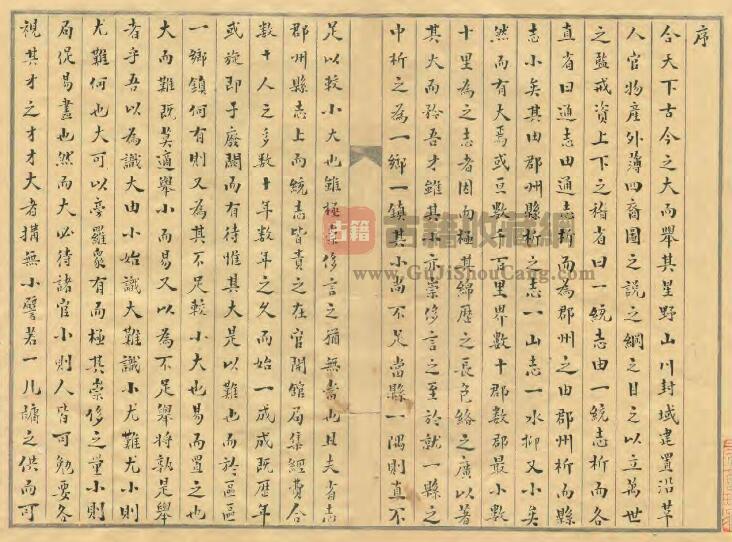 序
今天下古今之大而舉其星野山川封域建置沿革
人官物產外薄四裔圖之說之綱之目之以立萬世
之鑒戒資上下之稽者曰一統志由一統志析而各
直省曰通志由通志析而為郡州之由郡州析而縣
志小矣其由郡州縣析之志一山志一水抑又小矣
然而有大焉或亘數千百里界數十郡數郡最小數
十里為之志者因而極其綿歷之長包絡之廣以著
其大而矜吾才雖其小亦崇侈言之至於就一縣之
中析之為一鄉一鎮其小尚不足當縣一隅則直不
足以較小大也雖極崇侈言之猶無當也且夫省志
郡州縣志上而統志皆責之在官開館局集經費合
數十人之多數十年數年之久而始一成或既歷年
或旋即于廢闕而有待惟其大是以難也而於區區
一鄉鎮何有則又為其不足較小大也易而置之也
大而難既莫適舉小而易又以為不足舉將孰是舉
者乎吾以為識大由小始識大難識小尤難尤小則
尤難何也大可以旁羅眾有而極其崇侈之量小則
局促易盡也然而大必待諸官小則人皆可勉要各
視其才之才才大者搆無小譬若一儿䡪之供而可
古籍
古籍收藏網
www.GuJiShouCang.com